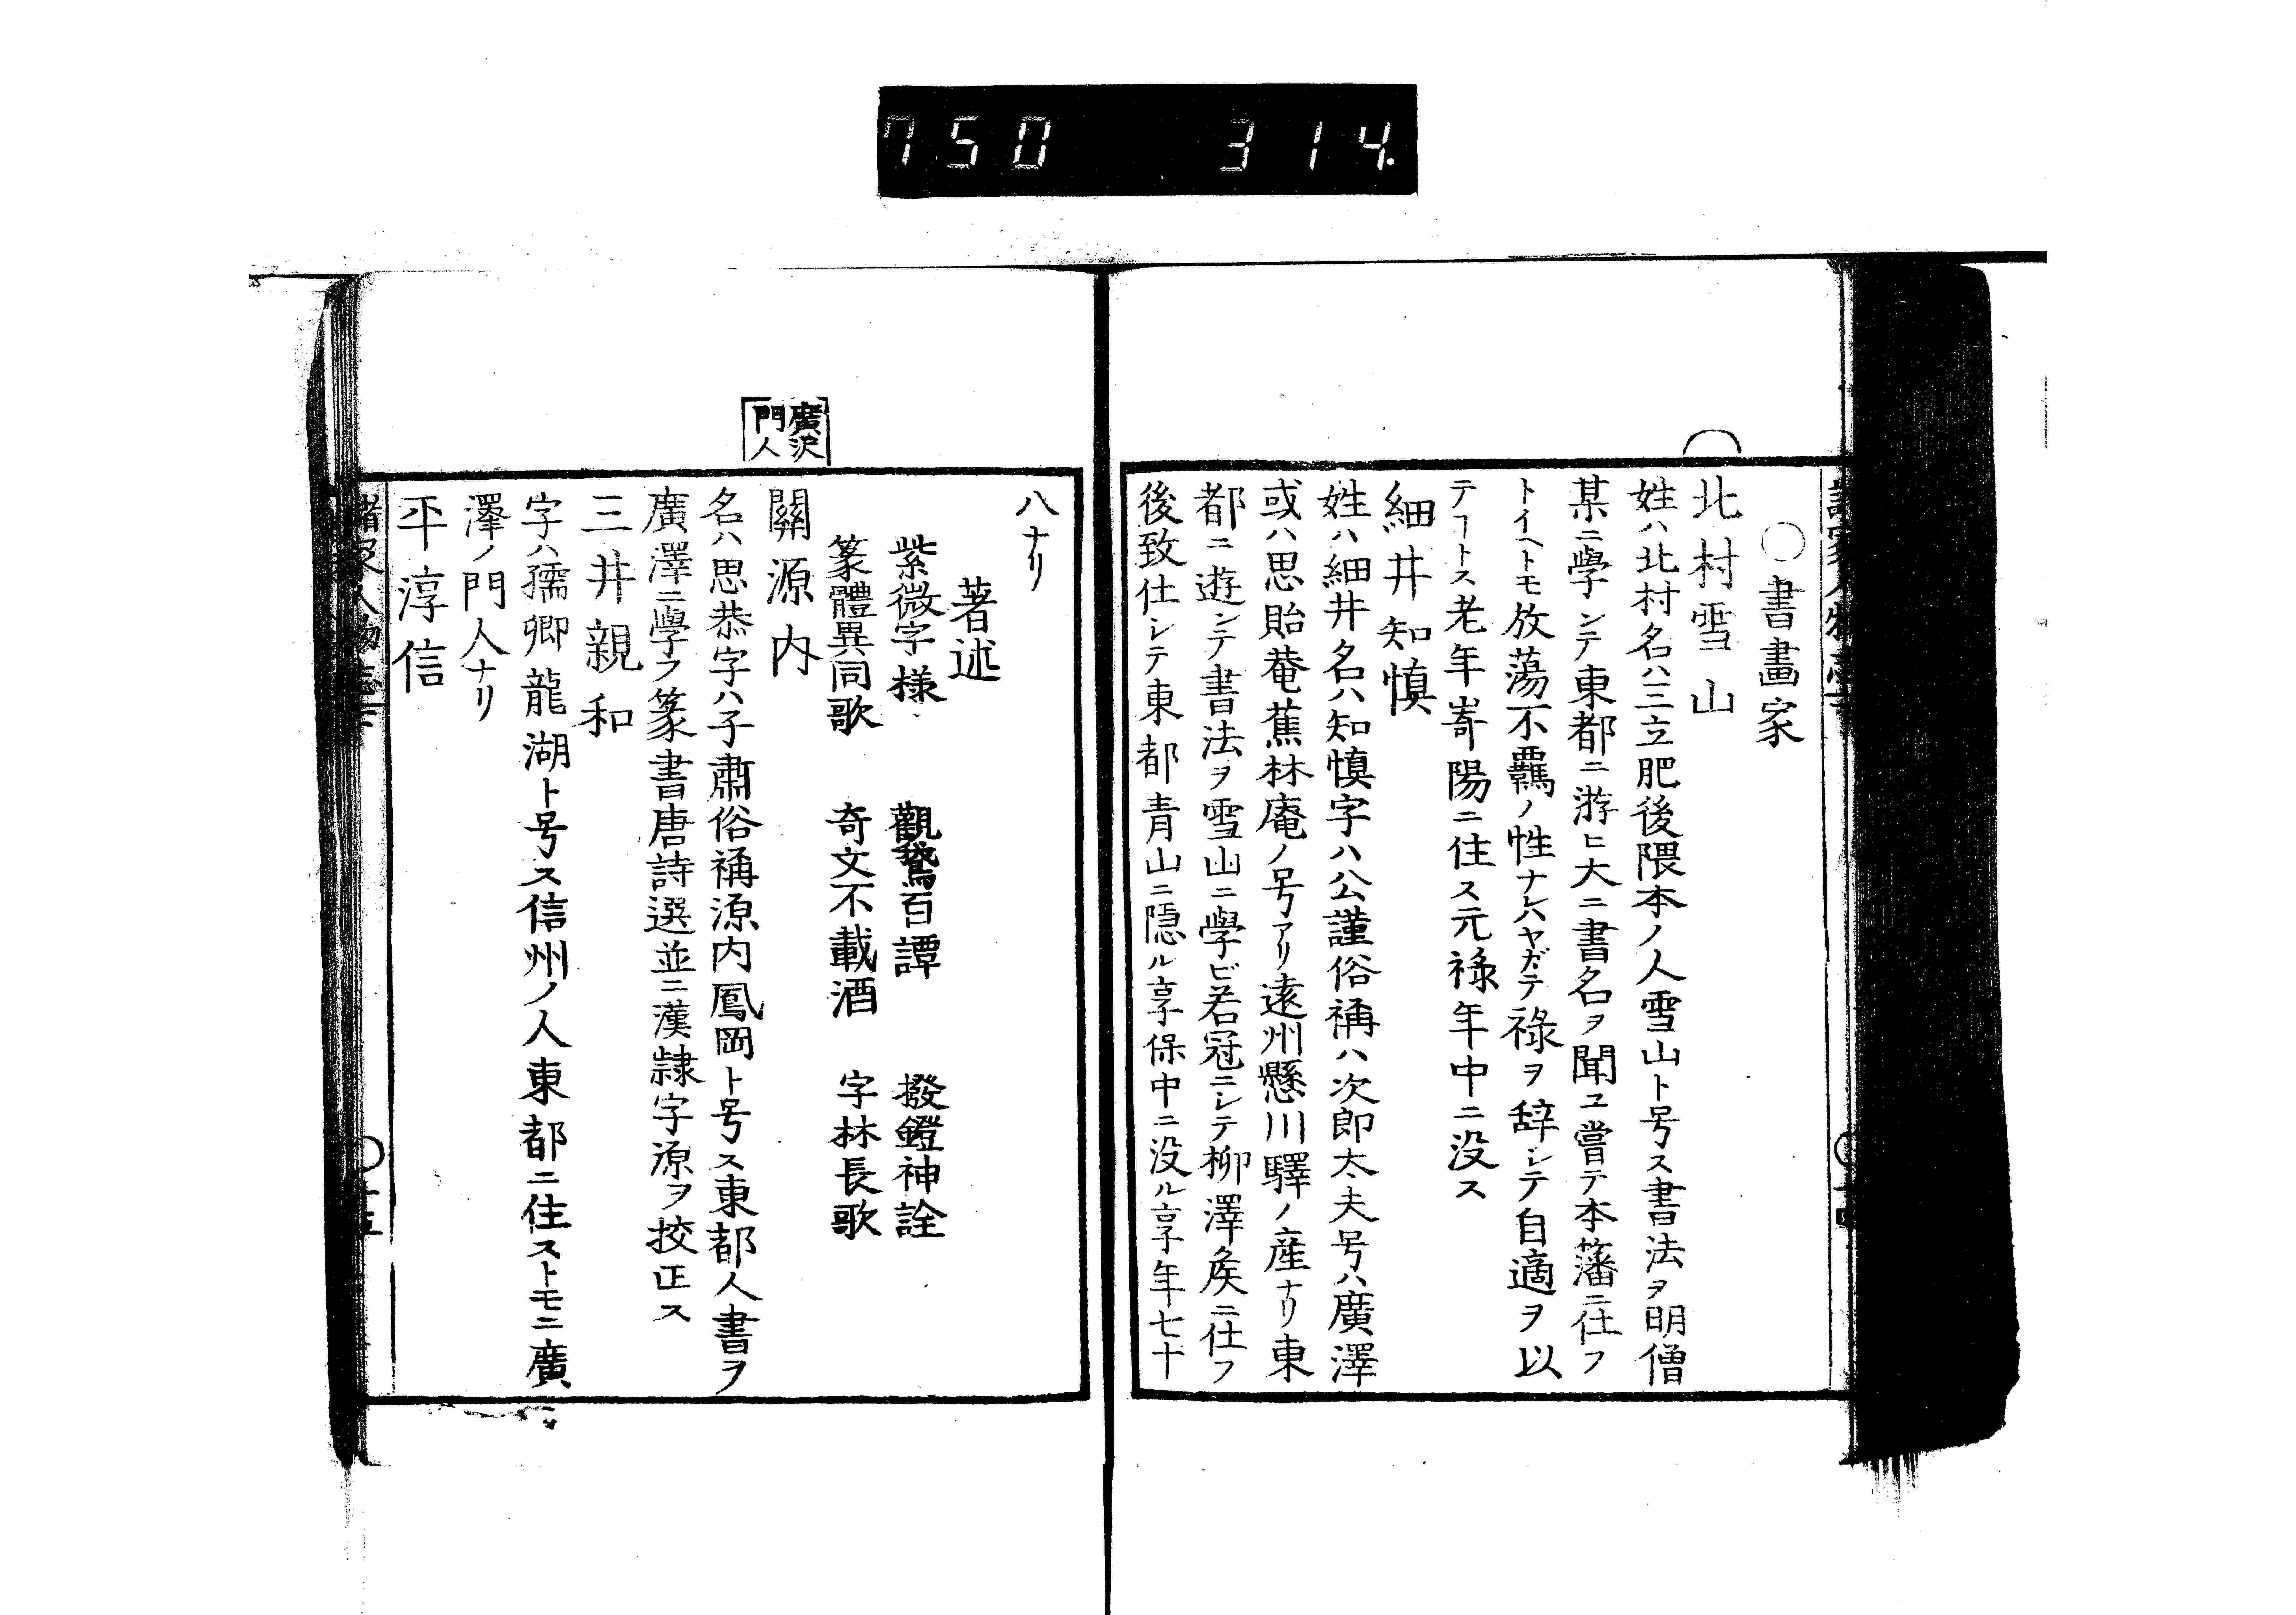 750 314.
〇書畫家
北村雪山
姓ハ北村名ハ三立肥後隈本ノ人雪山ト号ス書法ヲ明僧
某ニ學ンテ東都ニ游ヒ大ニ書名ヲ聞ユ嘗テ本藩ニ仕フ
トイヘトモ放蕩不羈ノ性ナレハヤガテ祿ヲ辞シテ自適ヲ以
テヿトス老年嵜陽ニ住ス元祿年中ニ没ス
細井知慎
姓ハ細井名ハ知慎字ハ公謹俗称ハ次郎太夫号ハ廣澤
或ハ思貽菴蕉林庵ノ号アリ遠州懸川驛ノ産ナリ東
都ニ遊ンテ書法ヲ雪山ニ學ビ若冠ニシテ柳澤矦ニ仕フ
後致仕シテ東都青山ニ隠ル享保中ニ没ル享年七十
八ナリ
著述
紫微字様 觀鵞百譚 撥鐙神詮
篆體異同歌 奇文不載酒 字林長歌
廣沢
門人
關源内
名ハ思恭字ハ子肅俗称源内鳳岡ト号ス東都人書ヲ
廣澤ニ學フ篆書唐詩選並ニ漢隷字源ヲ挍正ス
三井親和
字ハ孺卿龍湖ト号ス信州ノ人東都ニ住ストモニ廣
澤ノ門人ナリ
平淳信